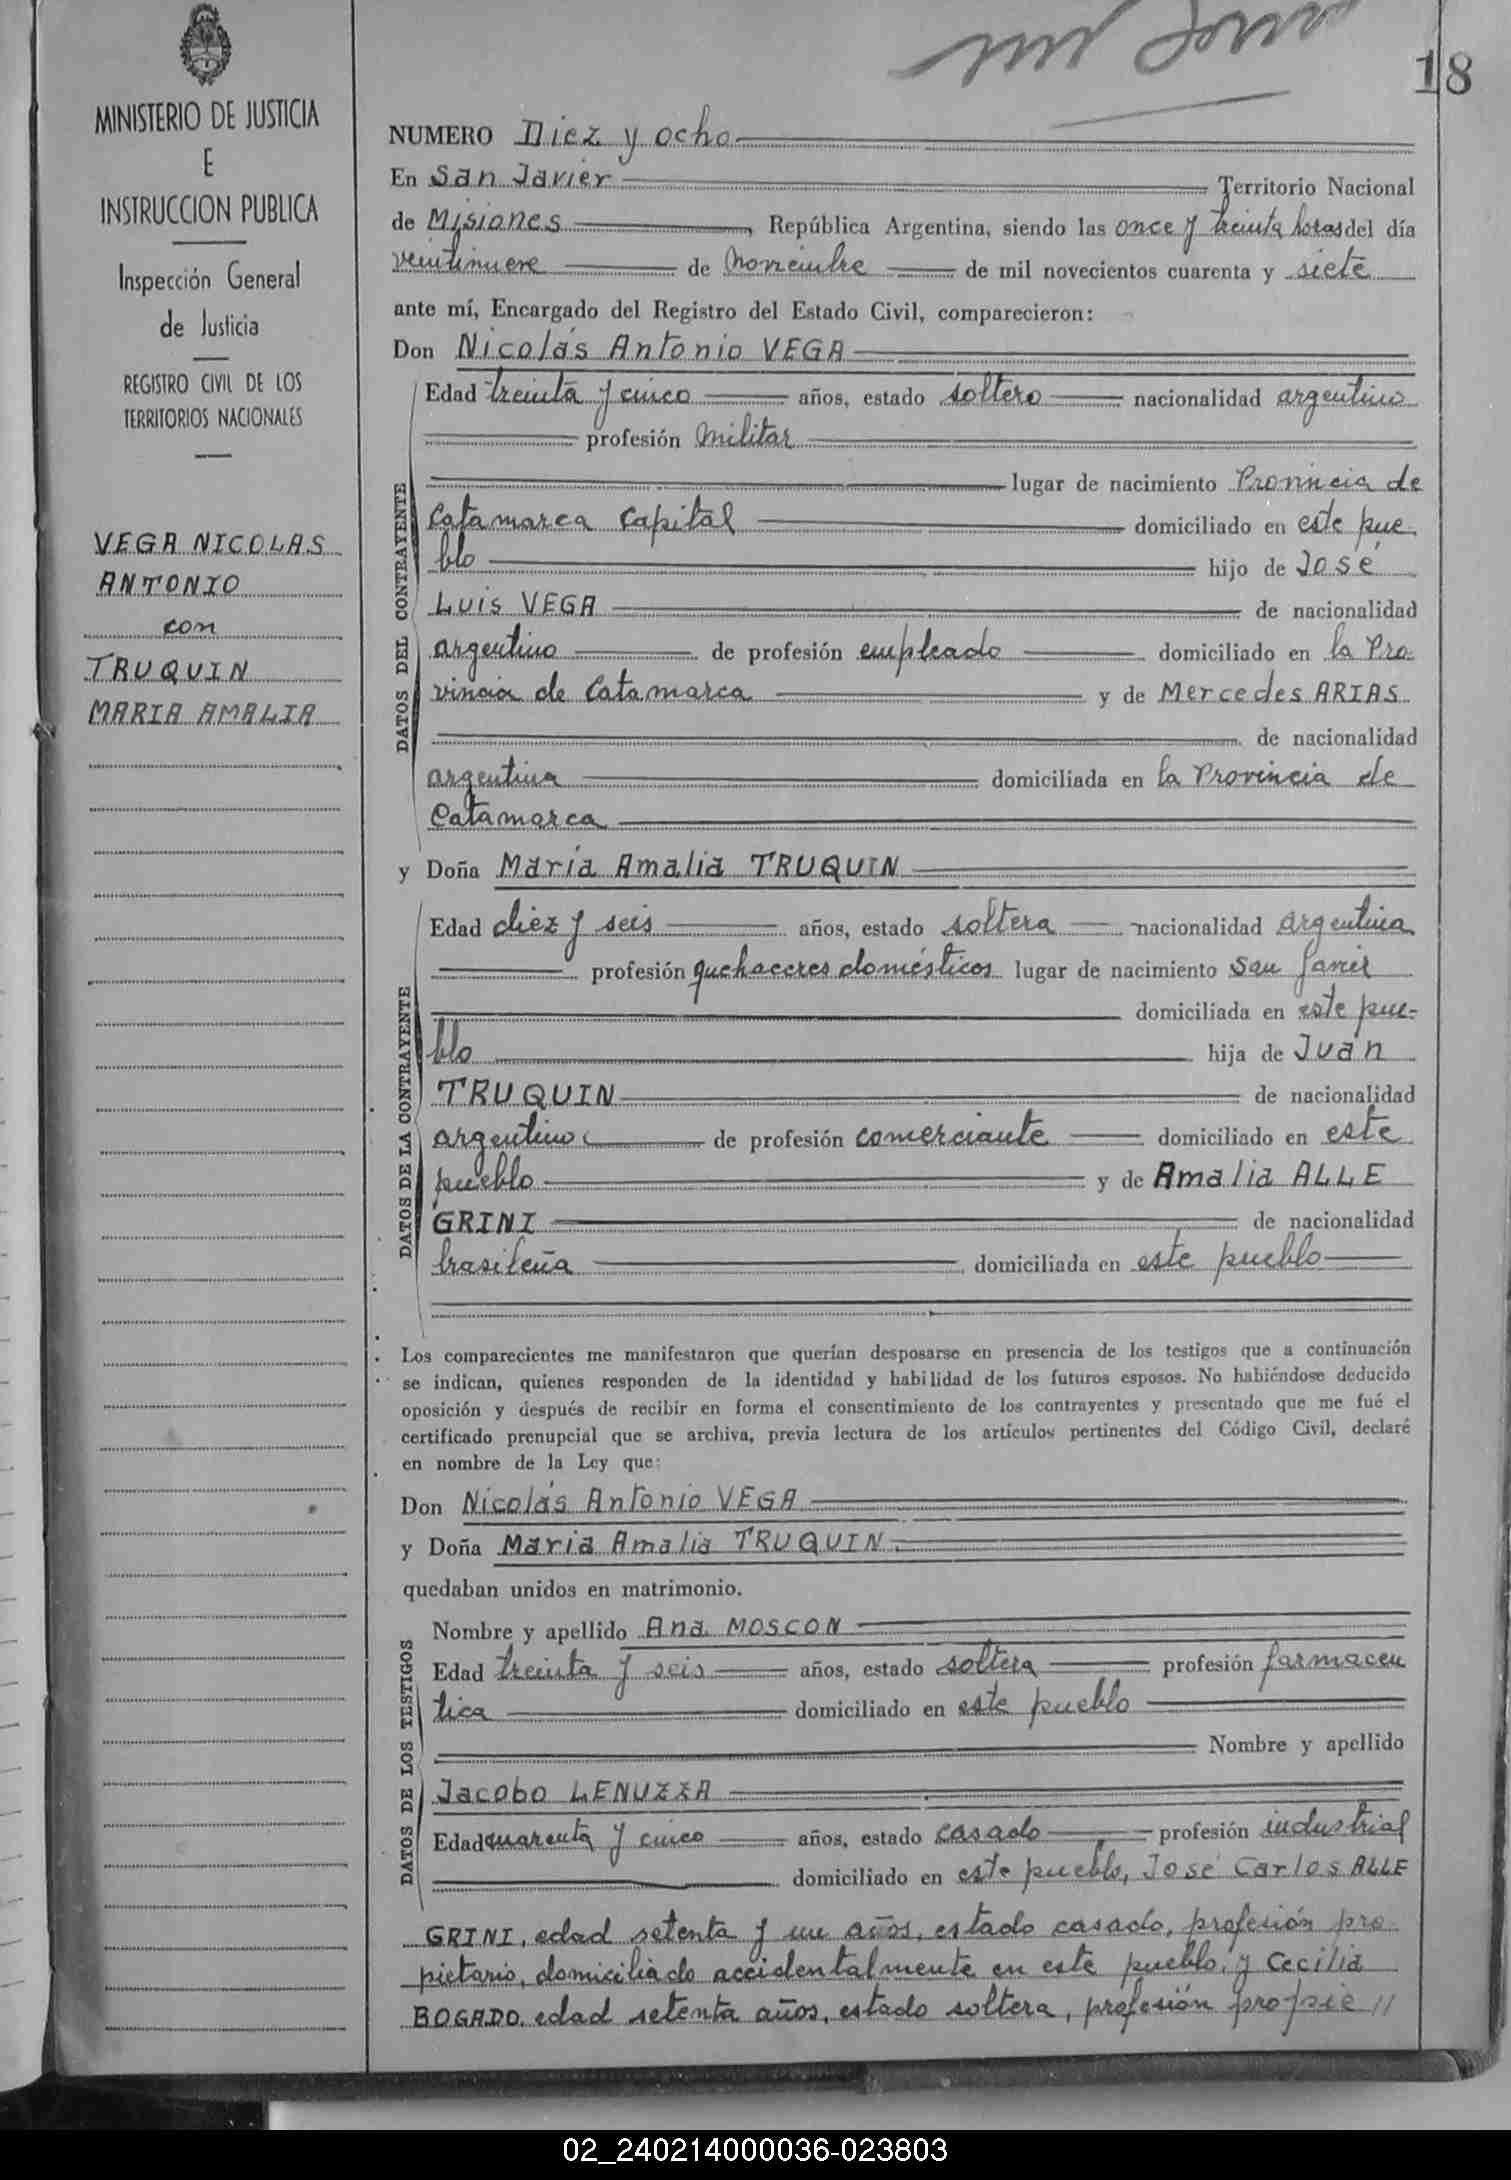 18
MINISTERIO DE JUSTICIA
E
INSTRUCCION PUBLICA
Inspección General
de Justicia
REGISTRO CIVIL DE LOS
TERRITORIOS NACIONALES
VEGA NICOLAS
ANTONIO
con
TRUQUIN
MARIA AMALIA
NUMERO Diez y ocho
En San Javier Territorio Nacional
de Misiones, República Argentina, siendo las once y treinta horas del día
veintinueve de noviembre de mil novecientos cuarenta y siete
ante mí, Encargado del Registro del Estado Civil, comparecieron:
Don Nicolás Antonio VEGA
DATOS DEL CONTRAYENTE
Edad treinta y cinco años, estado soltero nacionalidad argentino
profesión militar
lugar de nacimiento Provincia de
Catamarca Capital domiciliado en este pue
blo hijo de José
Luis VEGA de nacionalidad
argentino de profesión empleado domiciliado en la Pro
vincia de Catamarca y de Mercedes ARIAS
de nacionalidad
argentina domiciliada en la Provincia de
Catamarca
y Doña María Amalia TRUQUIN
DATOS DE LA CONTRAYENTE
Edad diez y seis años, estado soltera nacionalidad argentina
profesión quehaceres domésticos lugar de nacimiento San Javier
domiciliada en este pue-
blo hija de Juan
TRUQUIN de nacionalidad
argentino de profesión comerciante domiciliado en este
pueblo y de Amalia ALLE
GRINI de nacionalidad
brasileña domiciliada en este pueblo
Los comparecientes me manifestaron que querían desposarse en presencia de los testigos que a continuación
se indican, quienes responden de la identidad y habilidad de los futuros esposos. No habiéndose deducido
oposición y después de recibir en forma el consentimiento de los contrayentes y presentado que me fué el
certificado prenupcial que se archiva, previa lectura de los artículos pertinentes del Código Civil, declaré
en nombre de la Ley que:
Don Nicolás Antonio VEGA
y Doña María Amalia TRUQUIN.
quedaban unidos en matrimonio.
DATOS DE LOS TESTIGOS
Nombre y apellido Ana MOSCON
Edad treinta y seis años, estado soltera profesión farmaceu
tica domiciliado en este pueblo
Nombre y apellido
Jacobo LENUZZA
Edad cuarenta y cinco años, estado casado profesión industrial
domiciliado en este pueblo, José Carlos ALLE
GRINI, edad setenta y un años, estado casado, profesión pro
pietario, domiciliado accidentalmente en este pueblo, y Cecilia
BOGADO, edad setenta años, estado soltera, profesión propie //
02_240214000036-023803